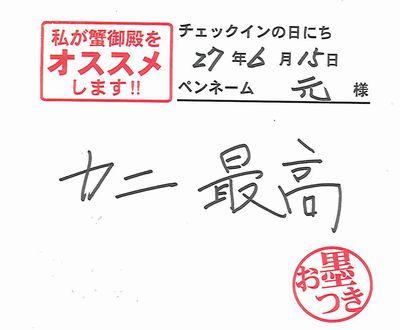 私が蟹御殿を
オススメ
します!!
チェックインの日にち
27年6月15日
ペンネーム 元 様
カニ 最高
お墨つき